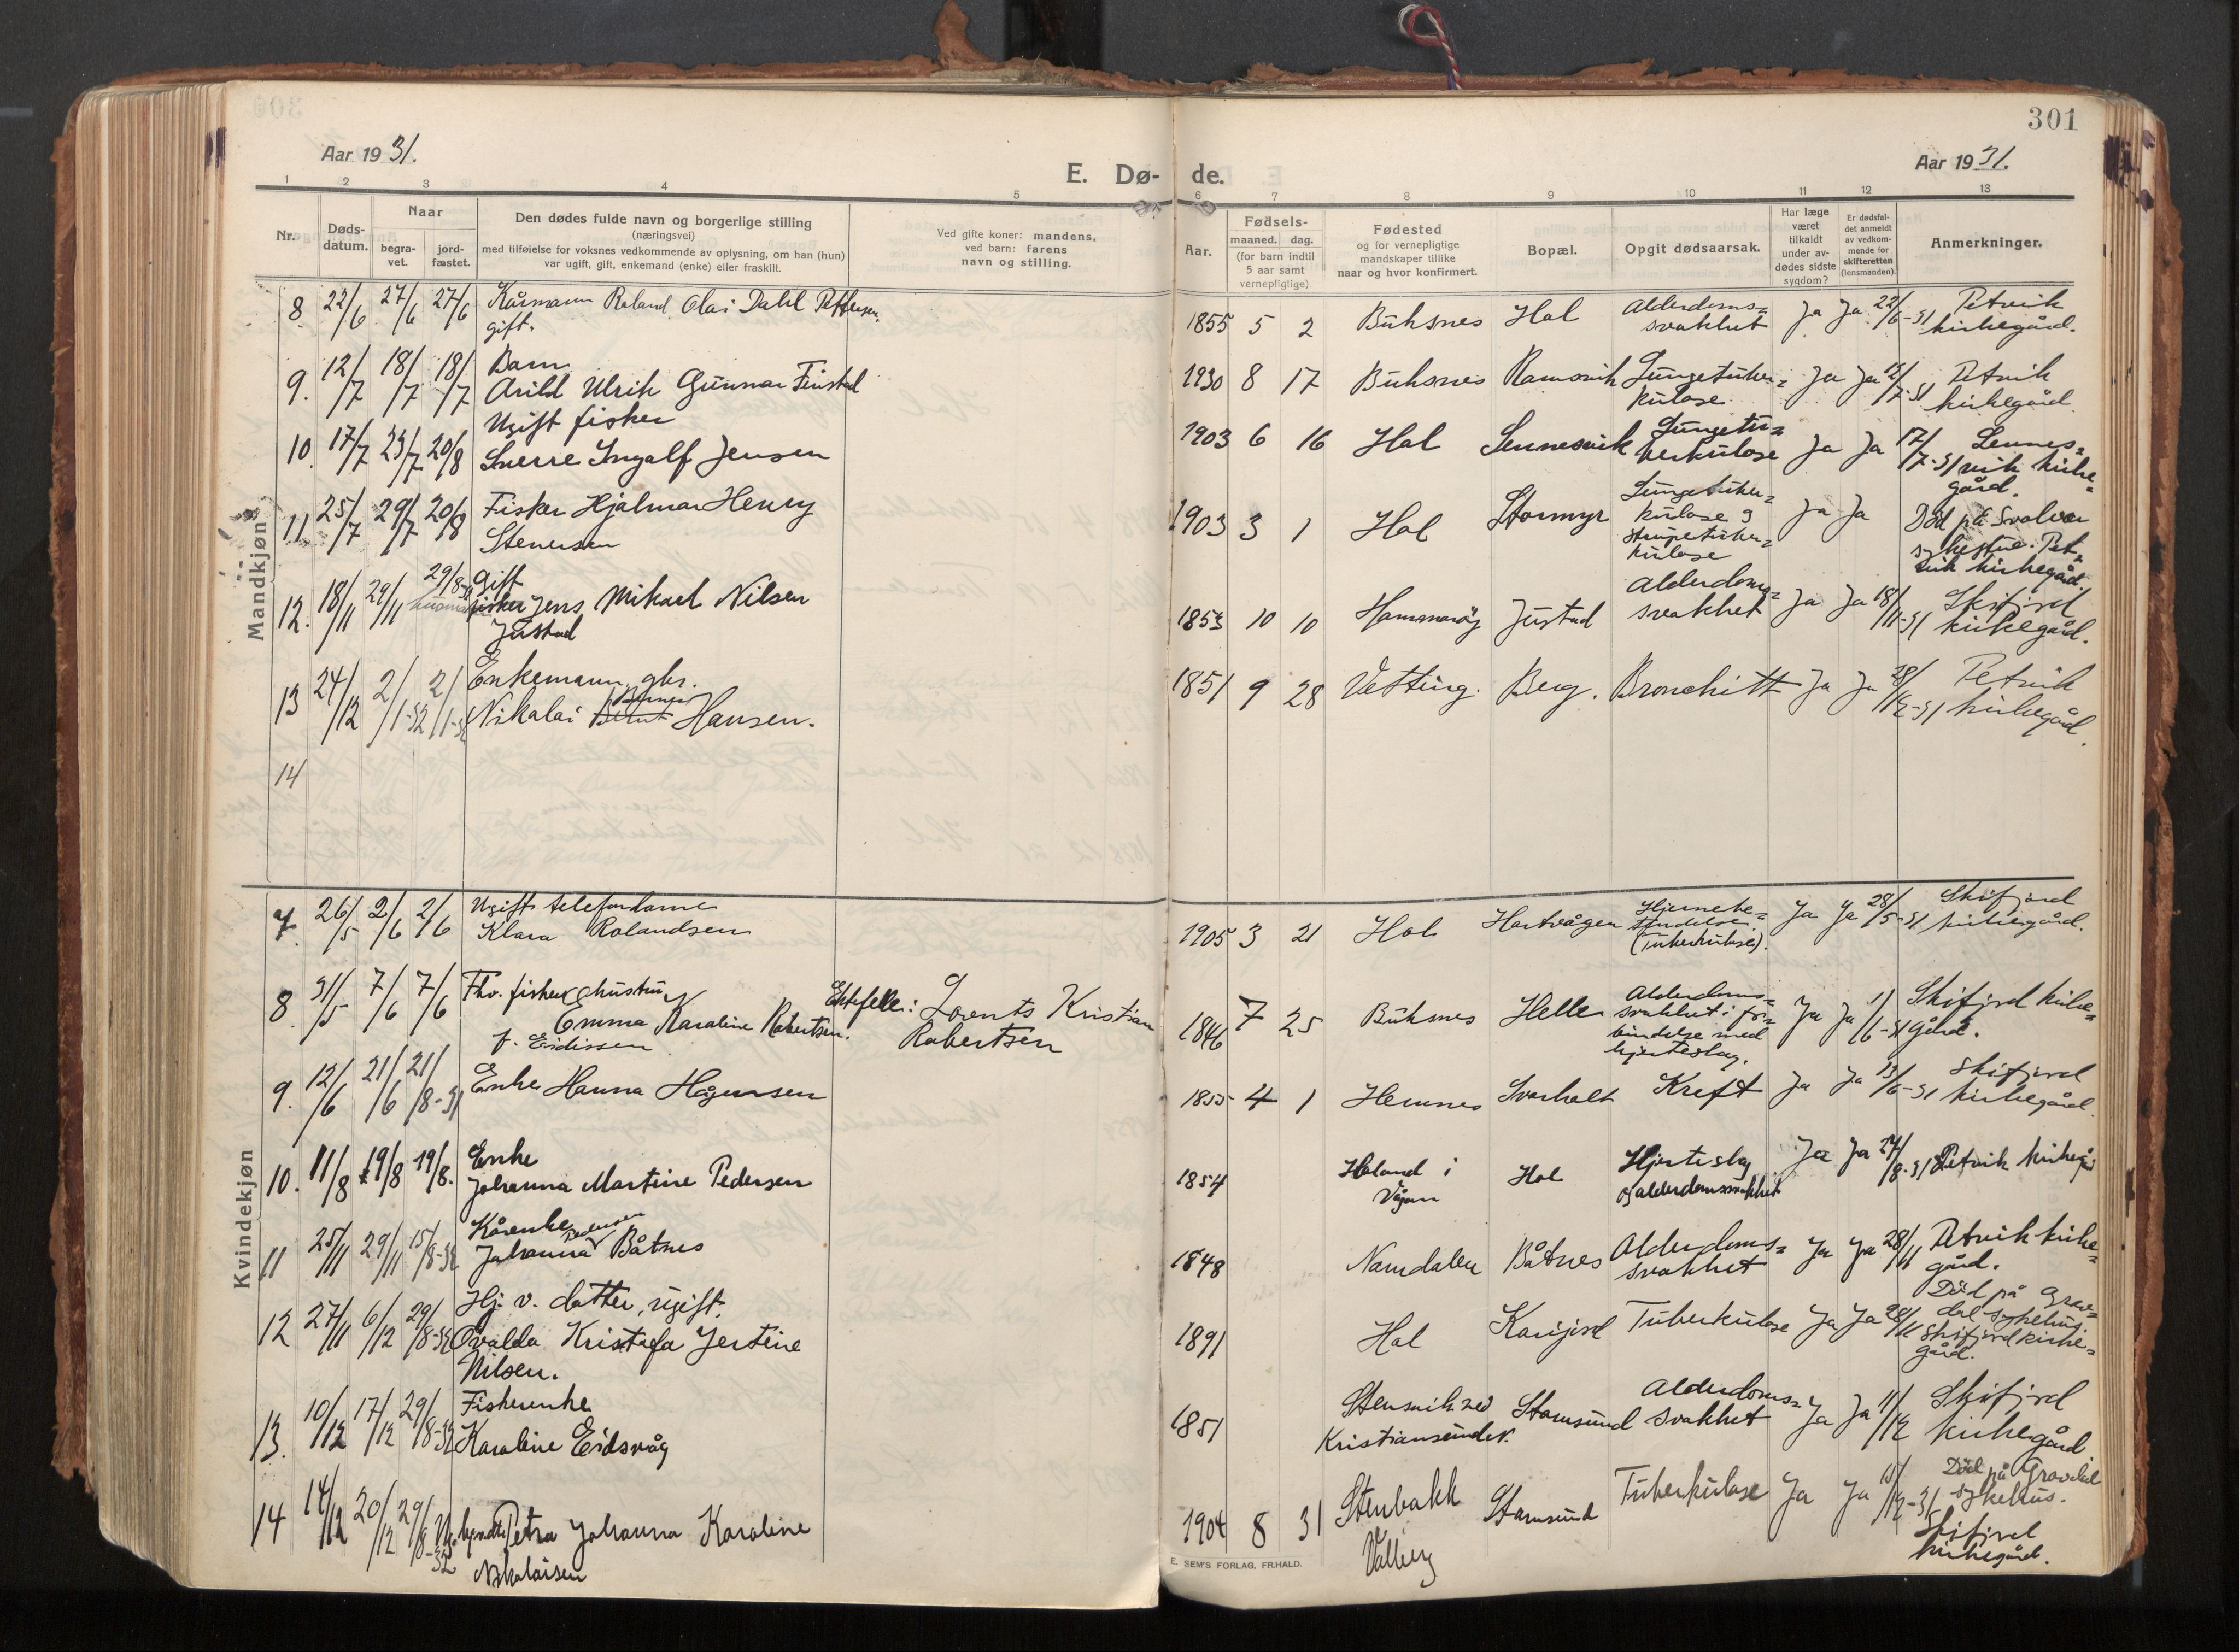 301
Aar 1931.
Aar 1931.
E. Dø- de.
1 2 3 4 5 6 7 8 9 10 11 12 13
Nr.
Døds-
datum.
Naar
begra-
vet.
jord-
fæstet.
Den dødes fulde navn og borgerlige stilling
(næringsvei)
med tilføielse for voksnes vedkommende av oplysning, om han (hun)
var ugift, gift, enkemand (enke) eller fraskilt.
Ved gifte koner: mandens,
ved barn: farens
navn og stilling.
Aar.
Fødsels-
maaned. dag.
(for barn indtil
5 aar samt
vernepligtige)
Fødested
og for vernepligtige
mandskaper tillike
naar og hvor konfirmert.
Bopæl.
Opgit dødsaarsak.
Har læge
været
tilkaldt
under av-
dødes sidste
sygdom?
Er dødsfal-
det anmeldt
av vedkom-
mende for
skifteretten
(lensmanden).
Anmerkninger.
Mandkjøn
8 22/6 27/6 27/6 Kårmann Roland Olai Dahl Pettersen.
gift.
1855 5 2 Buksnes Hol Alderdoms=
svakhet Ja Ja 22/6-31 Petvik
kirkegård.
9. 12/7 18/7 18/7 Barn
Arild Ulrik Gunnar Finstad
1930 8 17 Buksnes Ramsvik Lungetuber=
kulose Ja Ja Petvik
kirkegård.
10. 17/7 23/7 20/8 Ugift fisker
Sverre Ingolf Jensen
1903 6 16 Hol Sennesvik Lungetu=
berkulose Ja Ja 17/7-31 Sennes=
vik kirke=
gård.
11. 25/7 29/7 20/8 Fisker Hjalmar Henry
Stenersen
1903 3 1 Hol Stormyr Lungetuber=
kulose og
strupetuber=
kulose Ja Ja Död på Svolvær
sykestue. Pet=
vik kirkegård.
12. 18/11 29/11 29/8-32 Gift
fisker Jens Mikael Nilsen
Justad
1853 10 10 Hammarøy Justad Alderdoms=
svakhet Ja Ja 18/11-31 Skifjord
kirkegård.
13 24/12 2/1-32 2/1-32 Enkemann, gbr.
Nikolai Hansen.
1851 9 28 Vetting. Berg. Bronchitt Ja Ja 28/12-31 Petvik
kirkegård.
14
Kvindekjøn
7. 26/5 2/6 2/6 Ugift telefondame
Klara Rolandsen
1905 3 21 Hol Hartvågen Hjernebe=
tendelse
(Tuberkulose). Ja Ja 28/5-31 Skifjord
kirkegård.
8. 31/5 7/6 7/6 Fhv. fisker hustru
Emma Karoline Robertsen.
f. Eidissen
Ektefelle: Lorents Kristian
Robertsen
1846 7 25 Buksnes Helle Alderdoms=
svakhet i for=
bindelse med
hjerteslag. Ja Ja 1/6-31 Skifjord kirke=
gård.
9. 12/6 21/6 21/8-31 Enke Hanna Hågensen
1855 4 1 Hemnes Svarholt Kreft Ja Ja 13/6-31 Skifjord
kirkegård.
10. 11/8 19/8 19/8. Enke
Johanna Martine Pedersen
1854 Holand i
Vågan Hol Hjerteslag
og alderdomssvakhet Ja Ja Petvik kirkegå
11 25/11 29/11 15/8-32 Kårenke
Johanna Båtnes
1848 Namdalen Båtnes Alderdoms=
svakhet Ja Ja 28/11 Petvik kirke=
gård.
12 27/11 6/12 29/8-32 Hj. v. datter, ugift.
Ovalda Kristofa Jertine
Nilsen.
1891 Hol Karijord Tuberkulose Ja Ja 28/11 Död på Grav=
dal sykehus.
Skifjord kirke=
gård.
13. 10/12 17/12 29/8-32 Fiskerenke
Karoline Eidsvåg
1851 Stensvik ved
Kristiansund N. Stamsund Alderdoms=
svakhet Ja Ja 11/12 Skifjord
kirkegård
14 14/12 20/12 29/8-32 Petra Johanna Karoline
Nikolaisen
1904 8 31 Stenbakk
Valberg Stamsund Tuberkulose Ja Ja 15/12-31 Död på Gravdal
sykehus.
Skifjord
kirkegård.
E. SEM'S FORLAG, FR.HALD.